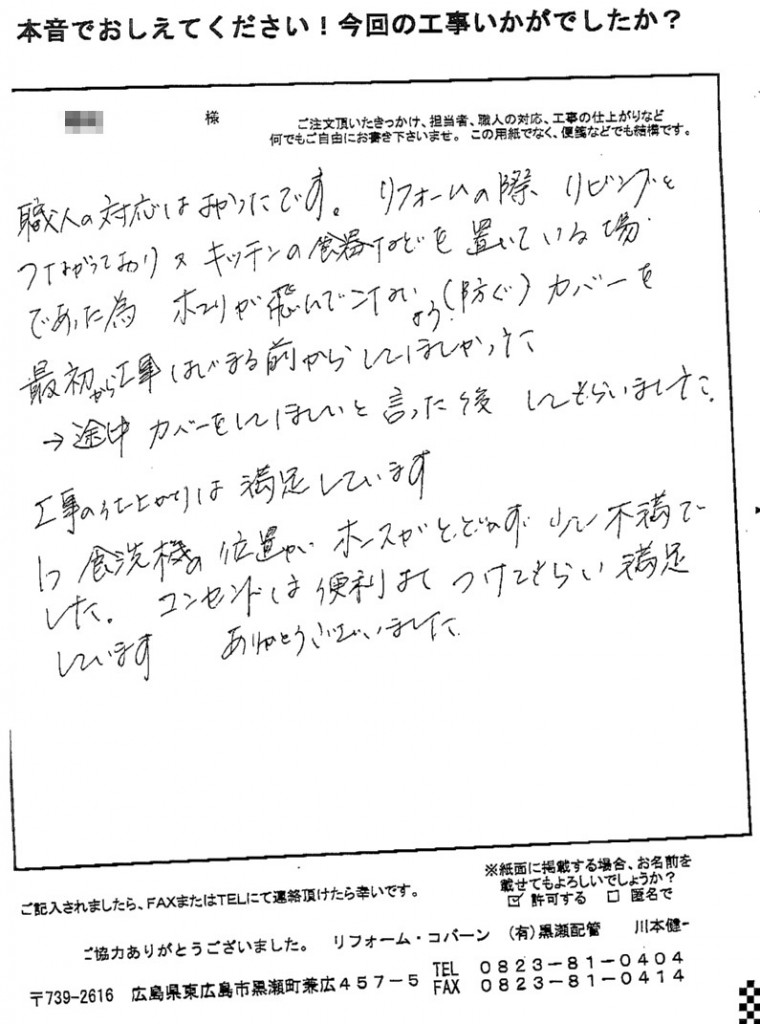 本音でおしえてください！今回の工事いかがでしたか？
様
ご注文頂いたきっかけ、担当者、職人の対応、工事の仕上がりなど
何でもご自由にお書き下さいませ。この用紙でなく、便箋などでも結構です。
職人の対応はよかったです。 リフォームの際 リビングと
つながっており キッチンの食器などを置いている場
であった為 ホコリが飛んでこない よう(防ぐ) カバーを
最初から工事はじまる前からしてほしかった
→途中 カバーをしてほしいと言った後 してもらいました。
工事の仕上がりは満足しています
食洗機の位置が ホースがとどかず 少し不満で
した。 コンセントは便利 つけてもらい満足
しています ありがとうございました。
※紙面に掲載する場合、お名前を
載せてもよろしいでしょうか？
ご記入されましたら、FAXまたはTELにて連絡頂けたら幸いです。
☑ 許可する □ 匿名で
ご協力ありがとうございました。 リフォーム・コバーン (有)黒瀬配管 川本健一
〒739-2616 広島県東広島市黒瀬町兼広４５７－５
TEL ０８２３－８１－０４０４
FAX ０８２３－８１－０４１４